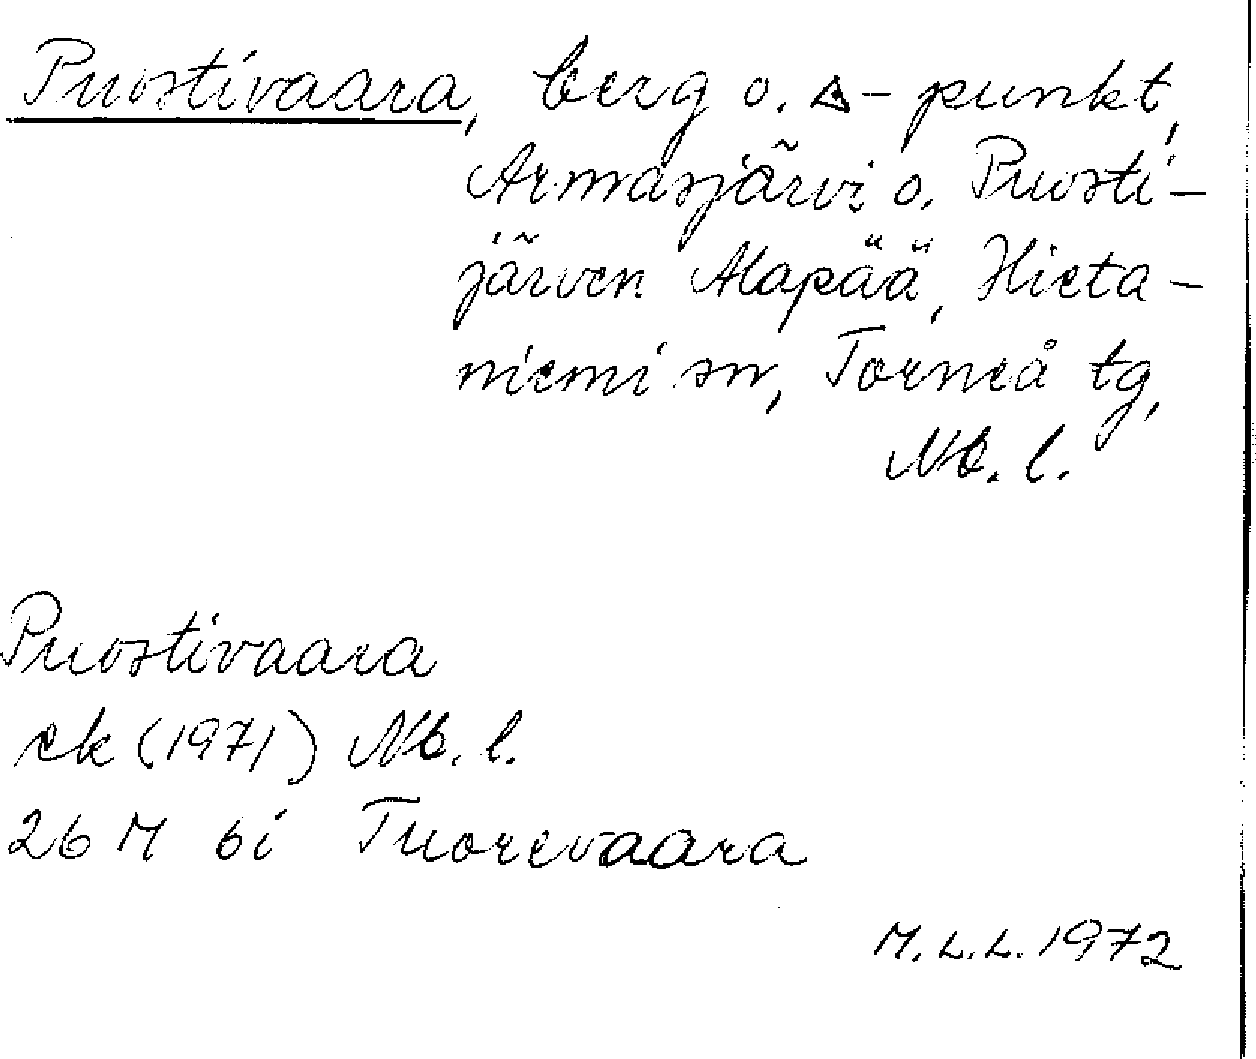 Puostivaara, berg o. △-punkt,
Armasjärvi o. Puosti-
järven Alapää, Hieta-
niemi sn, Torneå tg,
Nb. l.
Puostivaara
ek (1971) Nb. l.
26 M 6i Tuorevaara
M.L.L. 1972